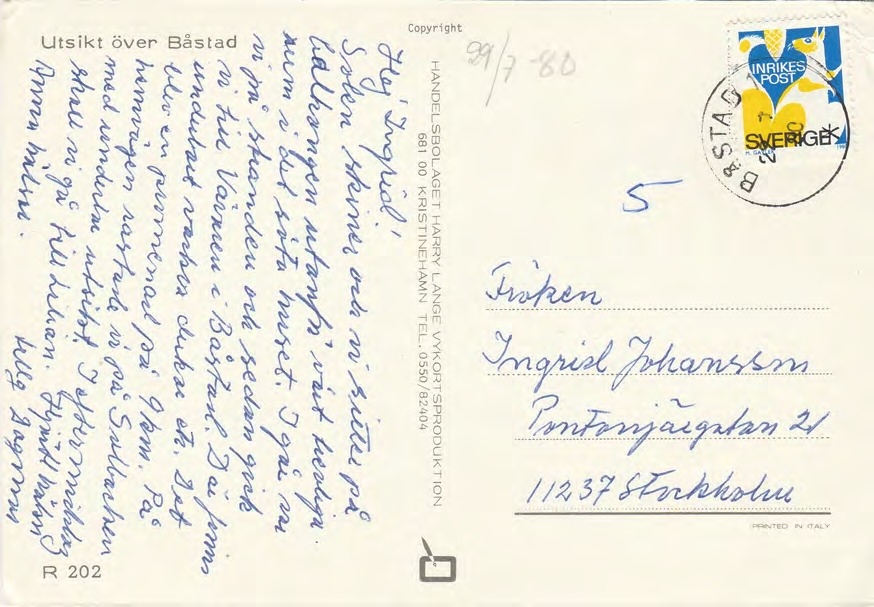 Utsikt över Båstad
Copyright
29/7-80
INRIKES
POST
SVERIGE
BÅSTAD
29 7 80
Hej Ingrid!
Solen skiner och vi sitter på
balkongen utanför vårt trevliga
rum i det söta huset. I går var
vi på stranden och sedan gick
vi till Båstad. Där finns
underbart vackra dukar etc. Det
blev en promenad på 9 km. På
hemvägen rastade vi på
med underbar utsikt. I eftermiddag
skall vi gå till Lilian. Hjärtl. hälsn.
hälsar.
Dagmar
HANDELSBOLAGET HARRY LANGE VYKORTSPRODUKTION
681 00 KRISTINEHAMN TEL. 0550/82404
5
Fröken
Ingrid Johansson
Pontonjärgatan 21
11237 Stockholm
PRINTED IN ITALY
R 202